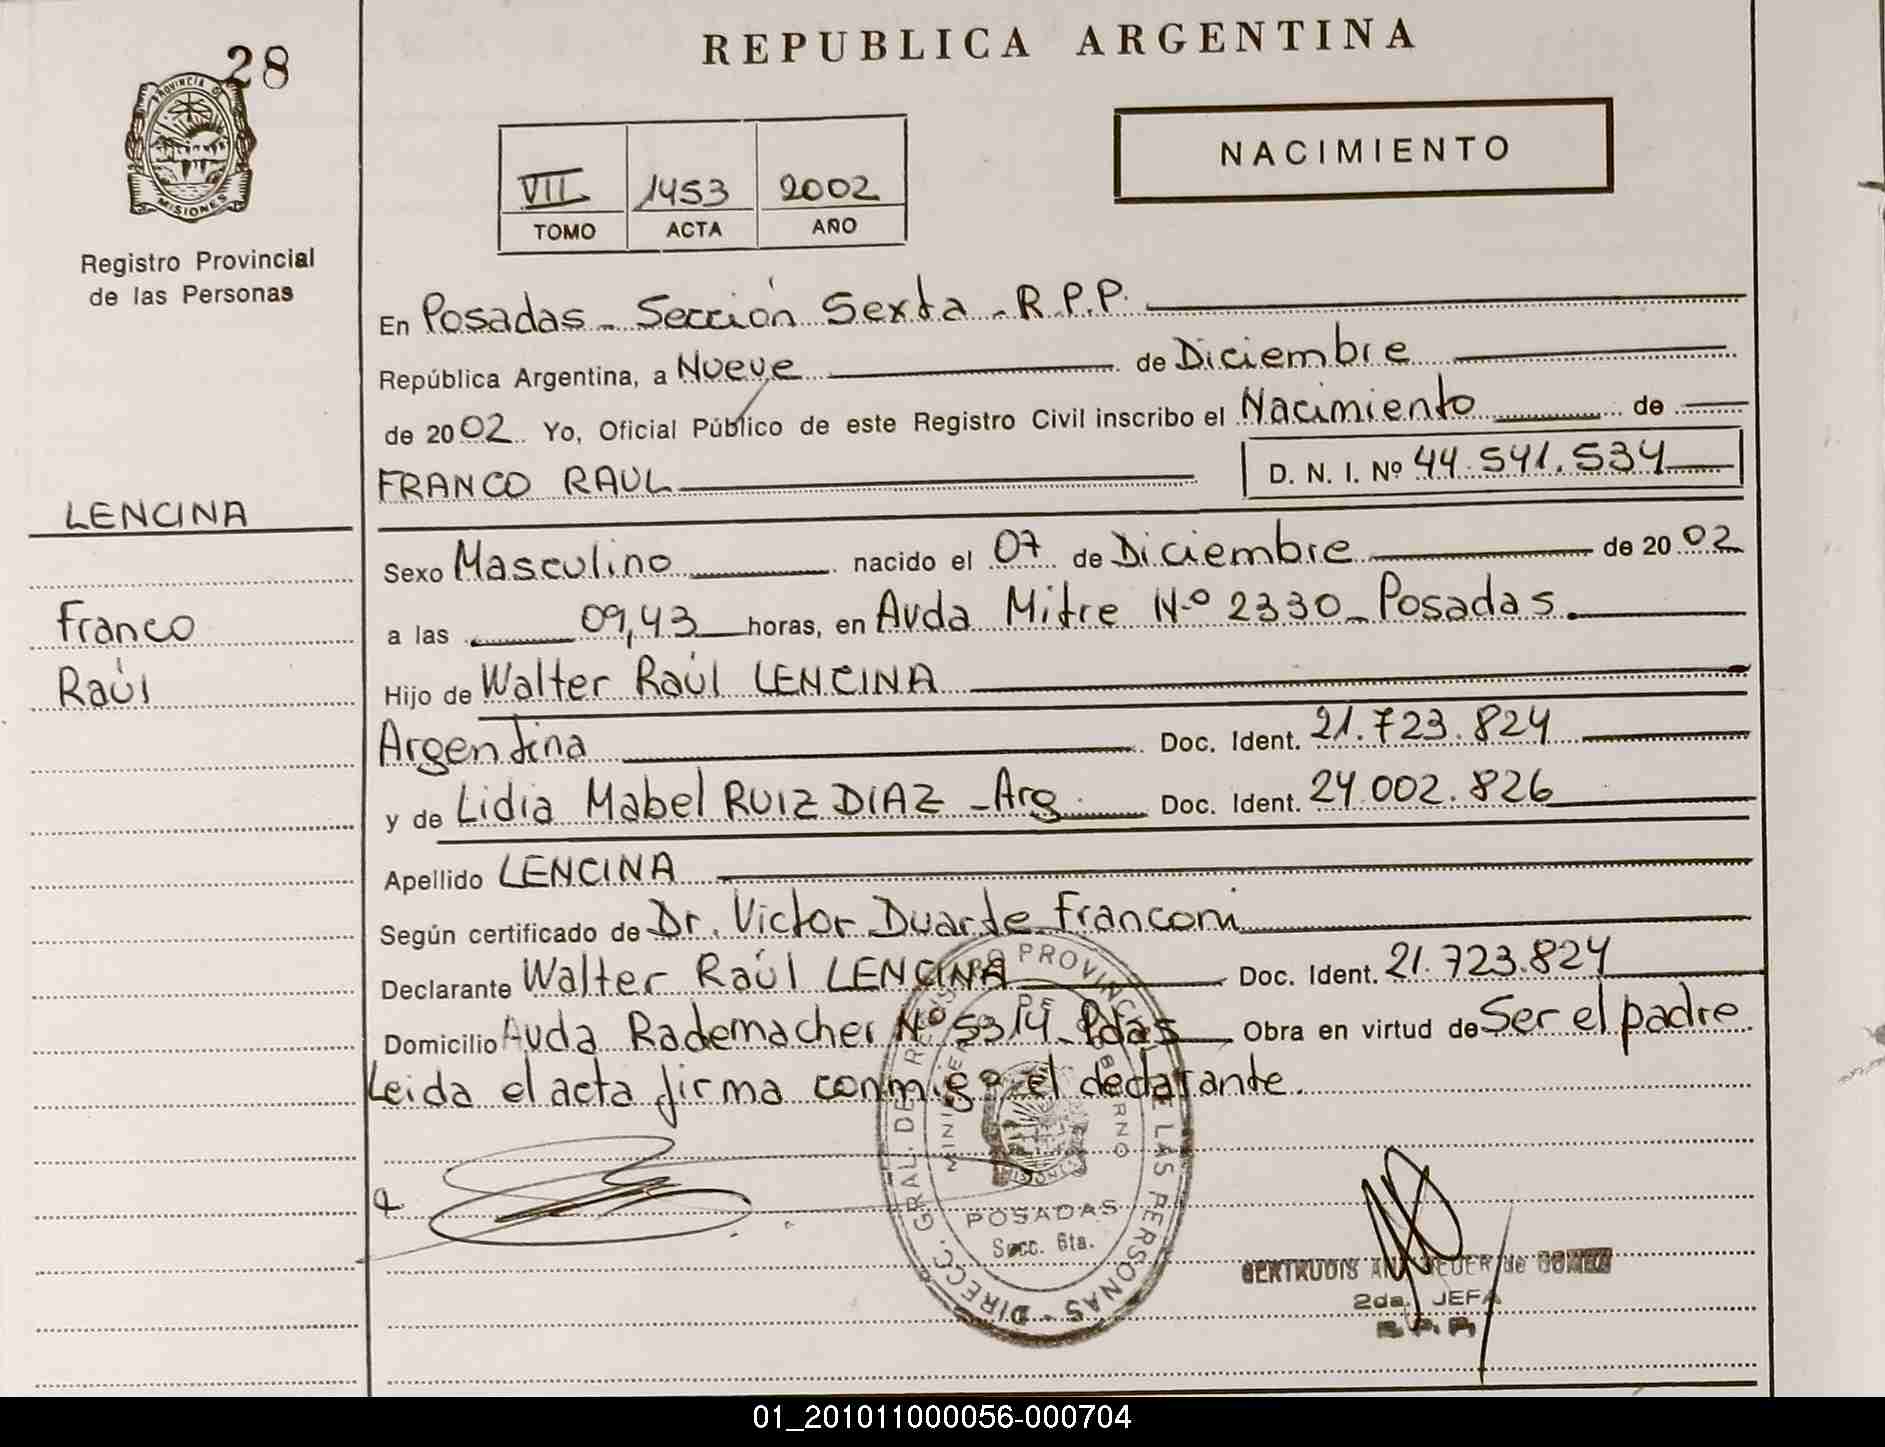 28
PROVINCIA DE
MISIONES
Registro Provincial
de las Personas
LENCINA
Franco
Raúl
REPUBLICA ARGENTINA
VII 1453 2002
TOMO ACTA AÑO
NACIMIENTO
En Posadas - Sección Sexta - R.P.P.
República Argentina, a Nueve de Diciembre
de 2002 Yo, Oficial Público de este Registro Civil inscribo el Nacimiento de
FRANCO RAUL D. N. I. Nº 44.541.534
Sexo Masculino nacido el 07 de Diciembre de 2002
a las 09,43 horas, en Avda Mitre Nº 2330 - Posadas.
Hijo de Walter Raúl LENCINA
Argentina Doc. Ident. 21.723.824
y de Lidia Mabel RUIZ DIAZ - Arg. Doc. Ident. 24.002.826
Apellido LENCINA
Según certificado de Dr. Victor Duarte Franconi
Declarante Walter Raúl LENCINA Doc. Ident. 21.723.824
Domicilio Avda Rademacher Nº 5314 - Pdas Obra en virtud de Ser el padre
Leida el acta firma conmigo el declarante.
DIRECC. GRAL. DE REGISTRO PROVINCIAL DE LAS PERSONAS -
MINISTERIO DE GOBIERNO
MISIONES
POSADAS
Secc. 6ta.
GERTRUDIS de GOMEZ
2da. JEFA
R.P.P.
01_201011000056-000704